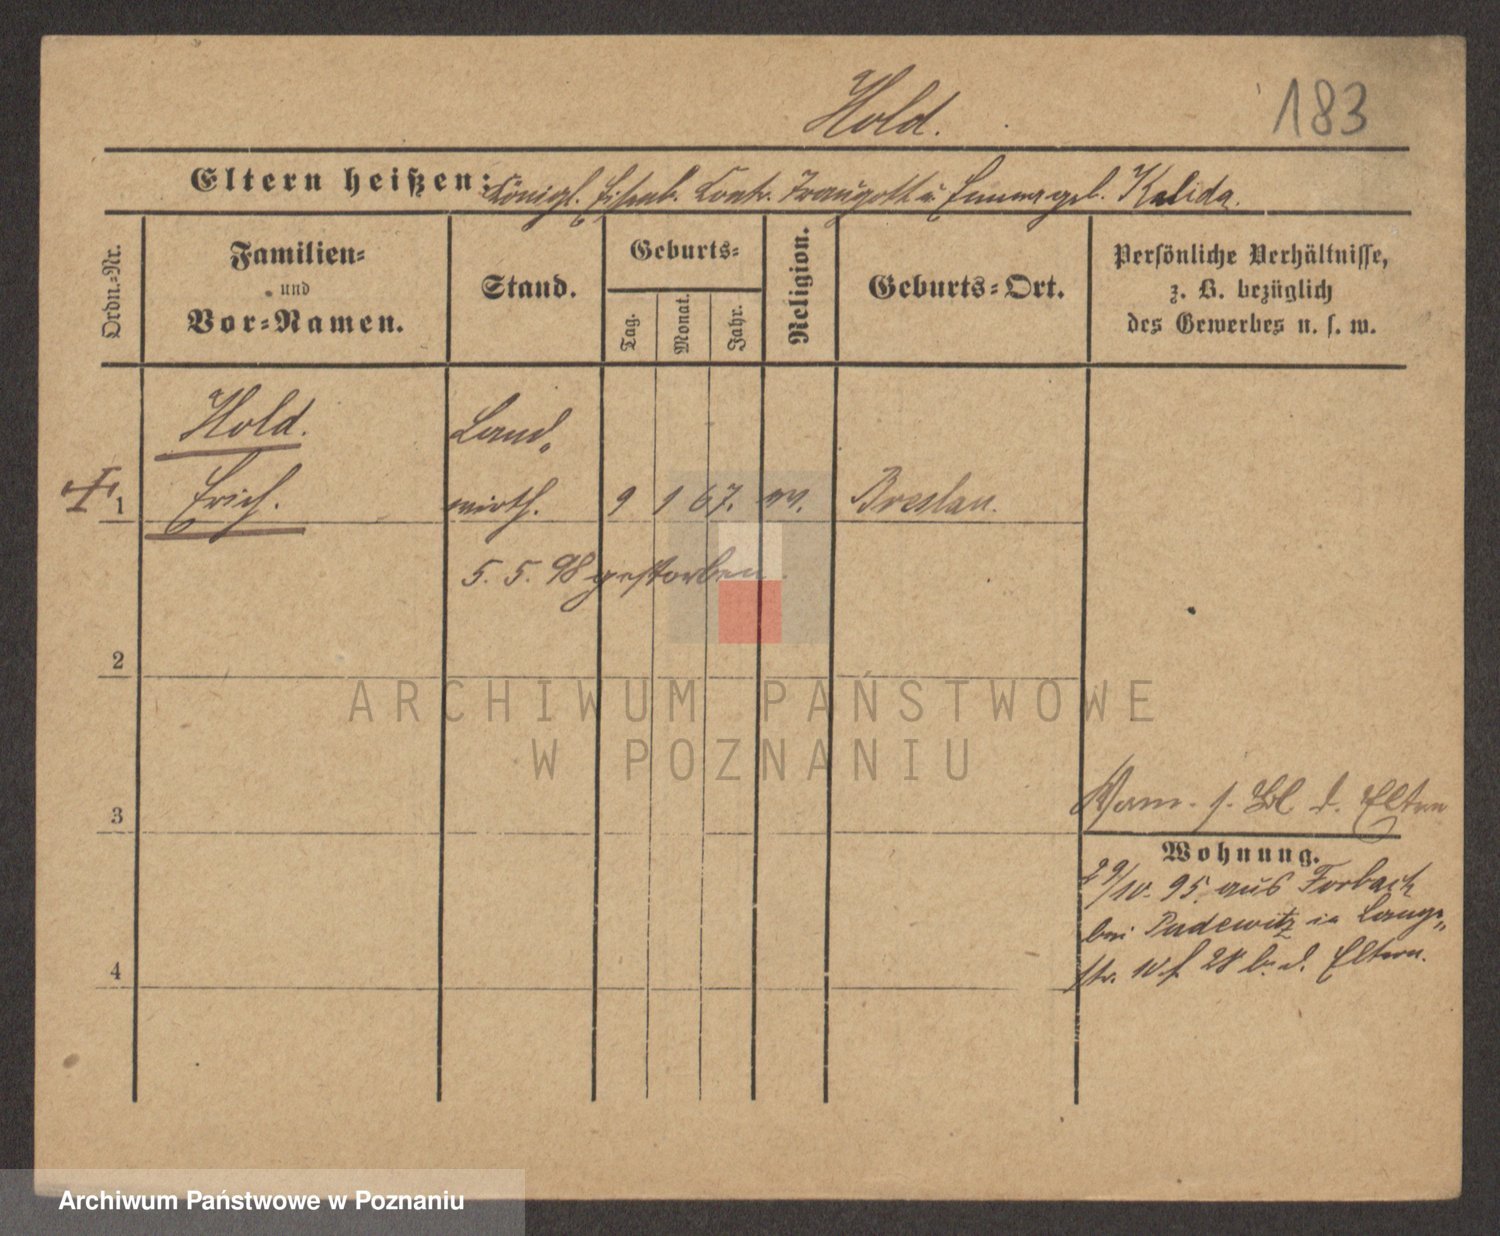 Hold.
183
Eltern heißen: Königl. Eisenb. Contr. Traugott u. Emma geb. Kalida.
Ordn.-Nr.
Familien-
und
Vor-Namen.
Stand.
Geburts-
Tag.
Monat.
Jahr.
Religion.
Geburts-Ort.
Persönliche Verhältnisse,
z. B. bezüglich
des Gewerbes u. s. w.
Hold. Land-
1 Erich. wirth. 9 1 67. ev. Breslau.
5. 5. 98 gestorben.
2
ARCHIWUM PAŃSTWOWE
W POZNANIU
3
s. Bl. d. Eltern
Wohnung.
29/10. 95. aus Forbach
bei Pudewitz in Lange-
str. 10 f. 28 b. d. Eltern.
4
Archiwum Państwowe w Poznaniu